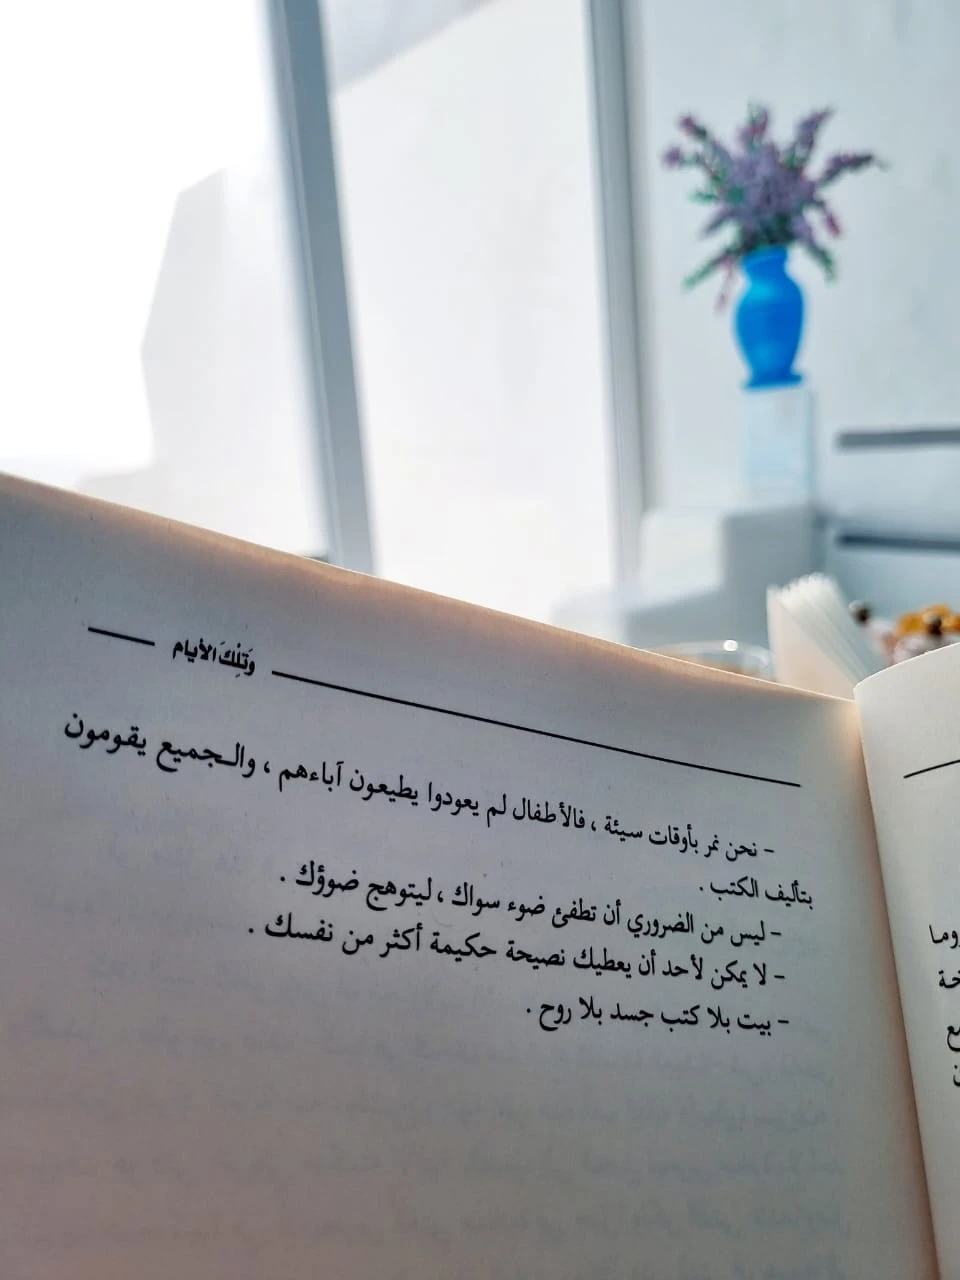 وَتِلْكَ الأيام
– نحن نمر بأوقات سيئة ، فالأطفال لم يعودوا يطيعون آباءهم ، والجميع يقومون
بتأليف الكتب .
– ليس من الضروري أن تطفئ ضوء سواك ، ليتوهج ضوؤك .
– لا يمكن لأحد أن يعطيك نصيحة حكيمة أكثر من نفسك .
– بيت بلا كتب جسد بلا روح .